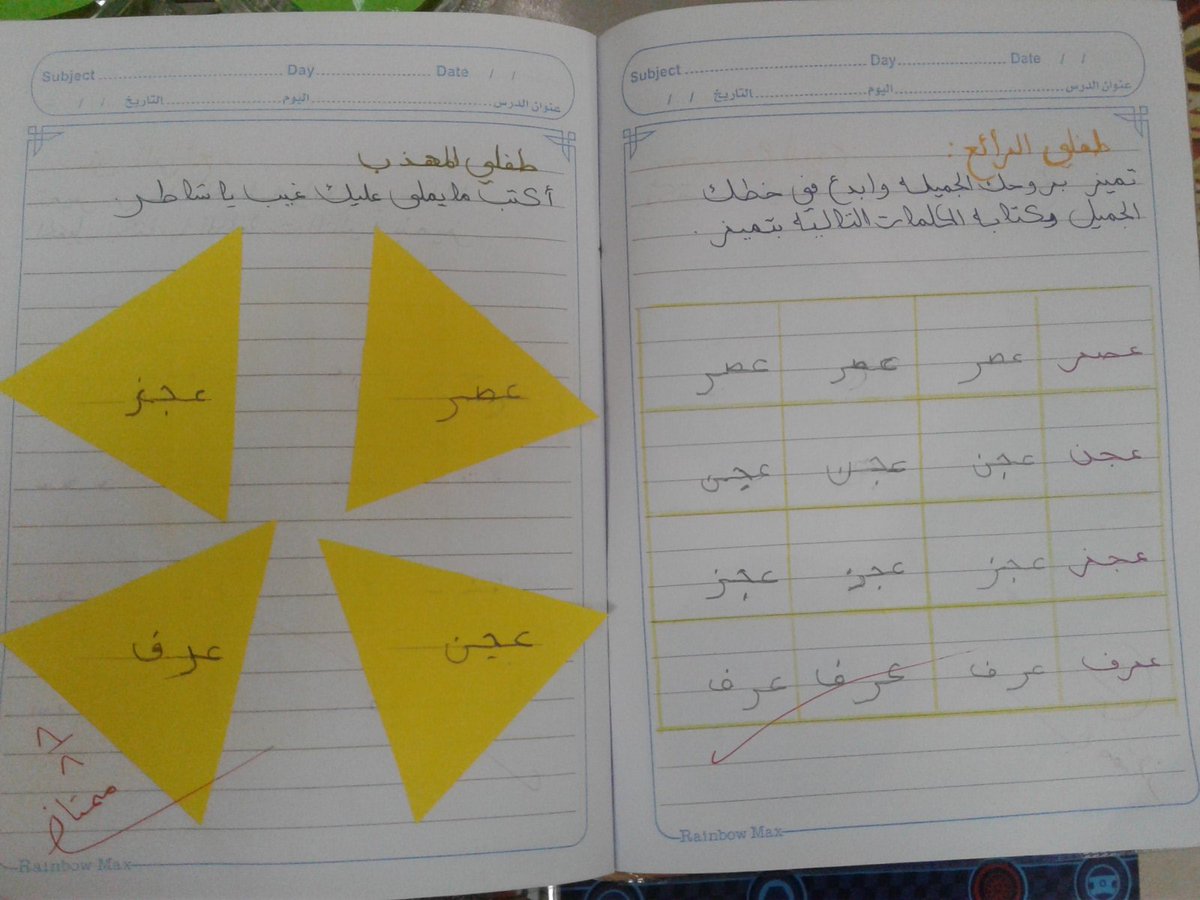 Subject Day Date / /
عنوان الدرس اليوم التاريخ / /
طفلي الرائع:
تميز بروحك الجميله وابدع في خطك
الجميل وكتابه الكلمات التاليه بتميز.
عصر عصر عصر عصر
عجن عجن عجن عجن
عجز عجز عجز عجز
عرف عرف عرف عرف
Rainbow Max
Subject Day Date / /
عنوان الدرس اليوم التاريخ / /
طفلي المهذب
أكتب ما يملى عليك غيبا يا شاطر.
عصر عجز
عجن عرف
٨/٨
ممتاز
Rainbow Max